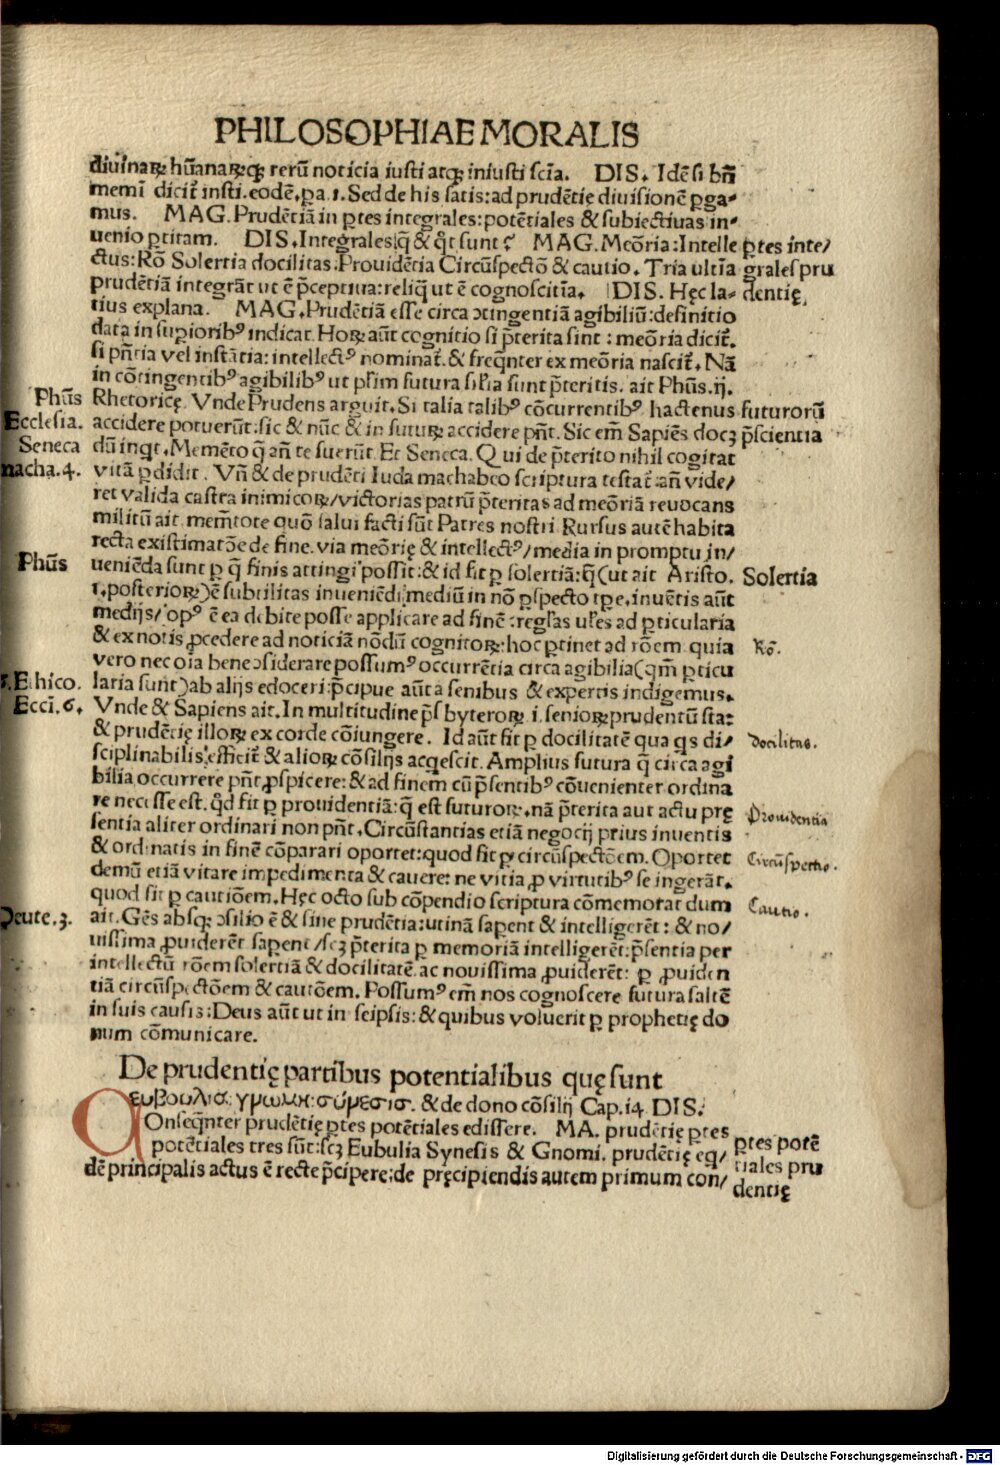 PHILOSOPHIAE MORALIS
diuinaꝝ hūanaꝝqꝫ rerū noticia iusti atqꝫ iniusti scīa. DIS. Idē si bn̄
memī dicit̄ insti. eodē. pa. 1. Sed de his satis: ad prudētie diuisionē ꝑga-
mus. MAG. Prudētiā in ꝑtes integrales: potētiales & subiectiuas in-
uenio ꝑtitam. DIS. Integrales q̄ & q̄t sunt? MAG. Meōria: Intelle
ctus: Rō Solertia docilitas. Prouidētia Circūspectō & cautio. Tria ultīa
prudētiā integrāt ut ē p̄ceptiua: reliq̄ ut ē cognoscitīa. DIS. Hęc la-
tius explana. MAG. Prudētiā esse circa ↄtingentiā agibiliū: definitio
data in suꝑiorib⁹ indicat. Hoꝝ aūt cognitio si p̄terita sint: meōria dicit̄.
si pn̄tia vel instātia: intellect⁹ nominat̄. & freq̄nter ex meōria nascit̄. Nā
in cōtingentib⁹ agibilib⁹ ut pl̄rim futura sil̄ia sunt p̄teritis. ait Ph̄us. ij.
Rhetoricę. Vnde Prudens arguit. Si talia talib⁹ cōcurrentib⁹ hactenus
accidere potuerūt: sic & nūc & in futuꝝ accidere pn̄t. Sic em̄ Sapiēs docꝫ
dū inqt. Memēto q̄ an̄ te fuerūt. Et Seneca. Qui de p̄terito nihil cogitat
vitā ꝑdidit. Vn̄ & de prudēti Iuda machabeo scriptura testat̄ an̄ vide/
ret valida castra inimicoꝝ/victorias patrū p̄teritas ad meōriā reuocans
militū ait. mem̄tote quō salui facti sūt Patres nostri. Rursus autē habita
recta existimatōe de fine. via meōrię & intellect⁹/media in promptu in/
ueniēda sunt ꝑ q̄ finis attingi possit: & id fit ꝑ solertiā: q̄ (ut ait Aristo.
1. posterioꝝ) ē subtilitas inueniēdi mediū in nō ꝑspecto tpe. inuētis aūt
medijs/op⁹ ē ea debite posse applicare ad finē: regl̄as ul̄es ad ꝑticularia
& ex notis ꝓcedere ad noticiā nōdū cognitoꝝ: hoc ꝑtinet ad rōem. quia
vero nec oīa bene ↄsiderare possum⁹ occurrētia circa agibilia (qm̄ ꝑticu
laria sunt) ab alijs edoceri: p̄cipue aūt a senibus & expertis indigemus.
Vnde & Sapiens ait. In multitudine p̄sbyteroꝝ .i. senioꝝ prudentū sta:
& prudētię illoꝝ ex corde cōiungere. Id aūt fit ꝑ docilitatē qua qs di/
sciplinabilis efficit̄ & alioꝝ cōsilijs acq̄escit. Amplius futura q̄ circa agi
bilia occurrere pn̄t ꝓspicere: & ad finem cū p̄sentib⁹ cōuenienter ordina
re necesse est. q̄d fit ꝑ prouidentiā: q̄ est futuroꝝ. nā p̄terita aut actu prę
sentia aliter ordinari non pn̄t. Circūstantias etiā negocij prius inuentis
& ordinatis in finē cōparari oportet: quod fit ꝑ circūspectōem. Oportet
demū etiā vitare impedimenta & cauere: ne vitia ꝓ virtutib⁹ se ingerāt.
quod fit ꝑ cautiōem. Hęc octo sub cōpendio scriptura cōmemorat dum
ait. Gēs absqꝫ ↄsilio ē & sine prudētia: utinā saperēt & intelligerēt: & no/
uissima ꝓuiderēt saperēt/scꝫ p̄terita ꝑ memoriā intelligerēt: p̄sentia per
intellectū rōem solertiā & docilitatē. ac nouissima ꝓuiderēt: ꝑ ꝓuiden
tiā circūspectōem & cautōem. Possum⁹ em̄ nos cognoscere futura saltē
in suis causis: Deus aūt ut in seipsis: & quibus voluerit ꝑ prophetię do
num cōmunicare.
Ph̄us
Ecclesia.
Seneca
macha. 4.
Ph̄us
Ethico.
Ecci. 6.
Deute. 3.
ꝑtes inte/
grales pru
dentię
futuroꝝ
p̄scientia
Solertia
Rō.
docilitas.
Prouidentia
Circūspectio.
Cautio.
De prudentię partibus potentialibus quę sunt
ευβουλια: γνωμη: σύνεσις. & de dono cōsilij Cap. 14. DIS.
COnseq̄nter prudētię ꝑtes potētiales edissere. MA. prudētię ꝑtes
potētiales tres sūt: scꝫ Eubulia Synesis & Gnomi. prudētię eq̄/
dē principalis actus ē recte p̄cipere: de pręcipiendis autem primum con/
ꝑtes potē
tiales pru
dentię
Digitalisierung gefördert durch die Deutsche Forschungsgemeinschaft - DFG